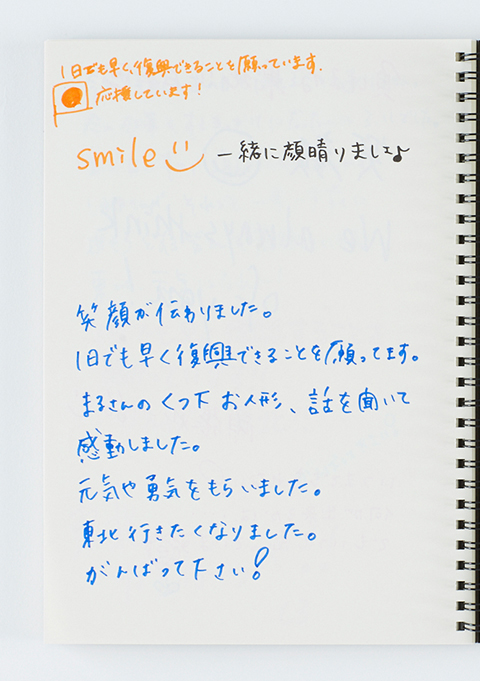 1日でも早く、復興できることを願っています.
応援しています!
smile 一緒に顔晴りましょ♪
笑顔が伝わりました。
1日でも早く復興できることを願ってます。
まるさんのくつ下お人形、話を聞いて
感動しました。
元気や勇気をもらいました。
東北行きたくなりました。
がんばって下さい!